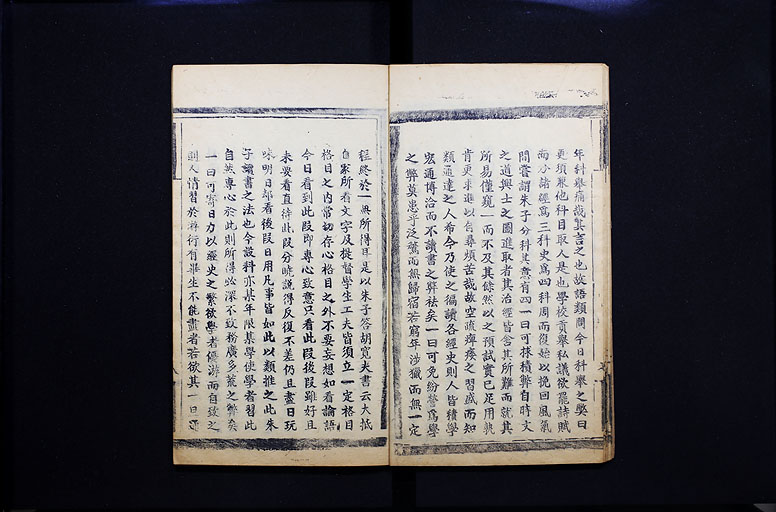 年科舉痛哉其言之也故語類問今日科舉之弊曰
更須兼他科目取人是也學校貢舉私議欲罷詩賦
而分諸經爲三科史爲四科周而復始以挽回風氣
間嘗謂朱子分科其意有四一曰可採積弊自時文
之道興士之圖進取者其治經皆舍其所難而就其
所易僅窺一而不及其餘然以之預試實已足用孰
肯更求進以自尋煩苦哉故空疏痺瘘之習盛而知
類通達之人希今乃使之徧讀各經史則人皆積學
宏通博洽而不讀書之弊祛矣一曰可免紛營爲學
之弊莫患乎泛騖而無歸宿若窮年涉獵而無一定
程終於一無所得耳是以朱子答胡寬夫書云大抵
自家所看文字及提督學生工夫皆須立一定格目
格目之內常切存心格目之外不要妄想如看論語
今日看到此段即專心致意只看此段後段雖好且
未要看直待此段分曉說得反復不差仍且盡日玩
味明日却看後段日用凡事皆如此以類推之此朱
子讀書之法也今設科亦某年限某學使學者習此
自然專心於此則所得必深不致務廣多荒之弊矣
一曰可寄日力以經史之繁欲學者優游而自致之
則人情習於游衍有畢生不能盡者若欲其一旦通